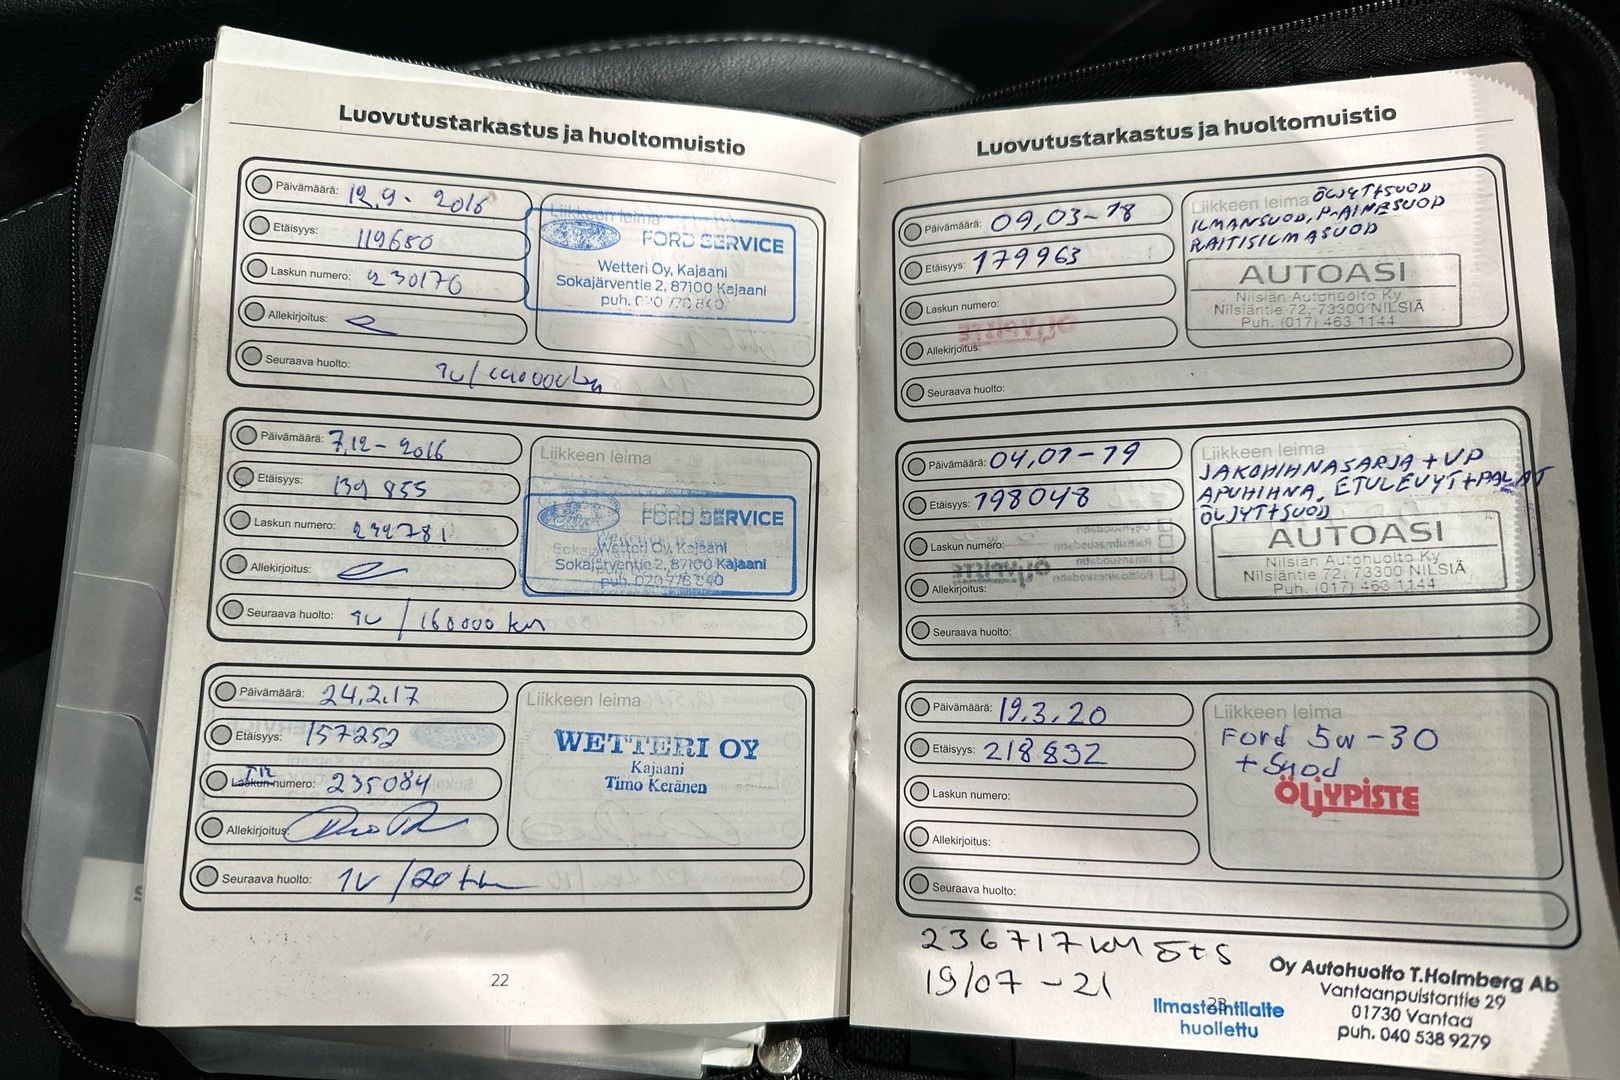 Luovutustarkastus ja huoltomuistio
Päivämäärä: 12.9. 2016
Etäisyys: 119680
Laskun numero: 230176
Allekirjoitus:
Seuraava huolto: 1v/140000km
Liikkeen leima
FORD SERVICE
Wetteri Oy, Kajaani
Sokajärventie 2, 87100 Kajaani
puh. 020 778 840
Päivämäärä: 7.12-2016
Etäisyys: 139 855
Laskun numero: 232781
Allekirjoitus:
Seuraava huolto: 1v/160000 km
Liikkeen leima
FORD SERVICE
Wetteri Oy, Kajaani
Sokajärventie 2, 87100 Kajaani
puh. 020 778 840
Päivämäärä: 24.2.17
Etäisyys: 157252
Laskun numero: 235084
Allekirjoitus:
Seuraava huolto: 1v/20tkm
Liikkeen leima
WETTERI OY
Kajaani
Timo Keränen
22
Luovutustarkastus ja huoltomuistio
Päivämäärä: 09,03-18
Etäisyys: 179963
Laskun numero:
Allekirjoitus:
Seuraava huolto:
Liikkeen leima ÖLJYT+SUOD
ILMANSUOD, P-AINESUOD
RAITISILMASUOD
AUTOASI
Nilsiän Autohuolto Ky
Nilsiäntie 72, 73300 NILSIÄ
Puh. (017) 463 1144
Päivämäärä: 04,01-19
Etäisyys: 198048
Laskun numero:
Allekirjoitus:
Seuraava huolto:
Liikkeen leima
JAKOHIHNASARJA + VP
APUHIHNA, ETULEVYT+PALAT
ÖLJYT+SUOD
AUTOASI
Nilsiän Autohuolto Ky
Nilsiäntie 72, 73300 NILSIÄ
Puh. (017) 463 1144
Päivämäärä: 19.3.20
Etäisyys: 218832
Laskun numero:
Allekirjoitus:
Seuraava huolto:
Liikkeen leima
Ford 5w-30
+ Suod
ÖLJYPISTE
236717 KM Ö+S
19/07 -21
23
Ilmastointilaite
huollettu
Oy Autohuolto T.Holmberg Ab
Vantaanpuistontie 29
01730 Vantaa
puh. 040 538 9279